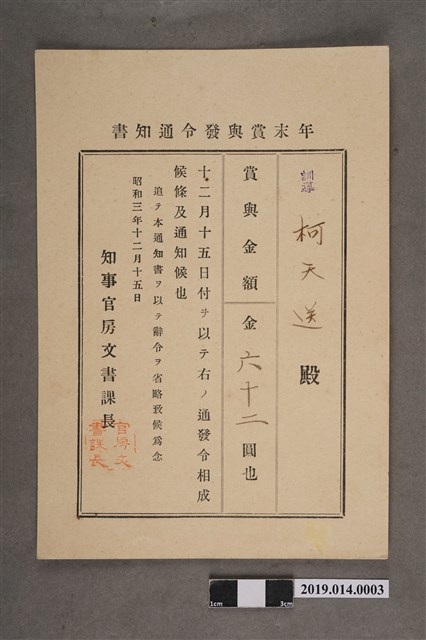 年末賞與發令通知書
訓導
柯天送殿
賞與金額 金六十二圓也
十二月十五日付ヲ以テ右ノ通發令相成
候條及通知候也
追テ本通知書ヲ以テ辭令ヲ省略致候爲念
昭和三年十二月十五日
知事官房文書課長
官房文
書課長
1cm 3cm
2019.014.0003